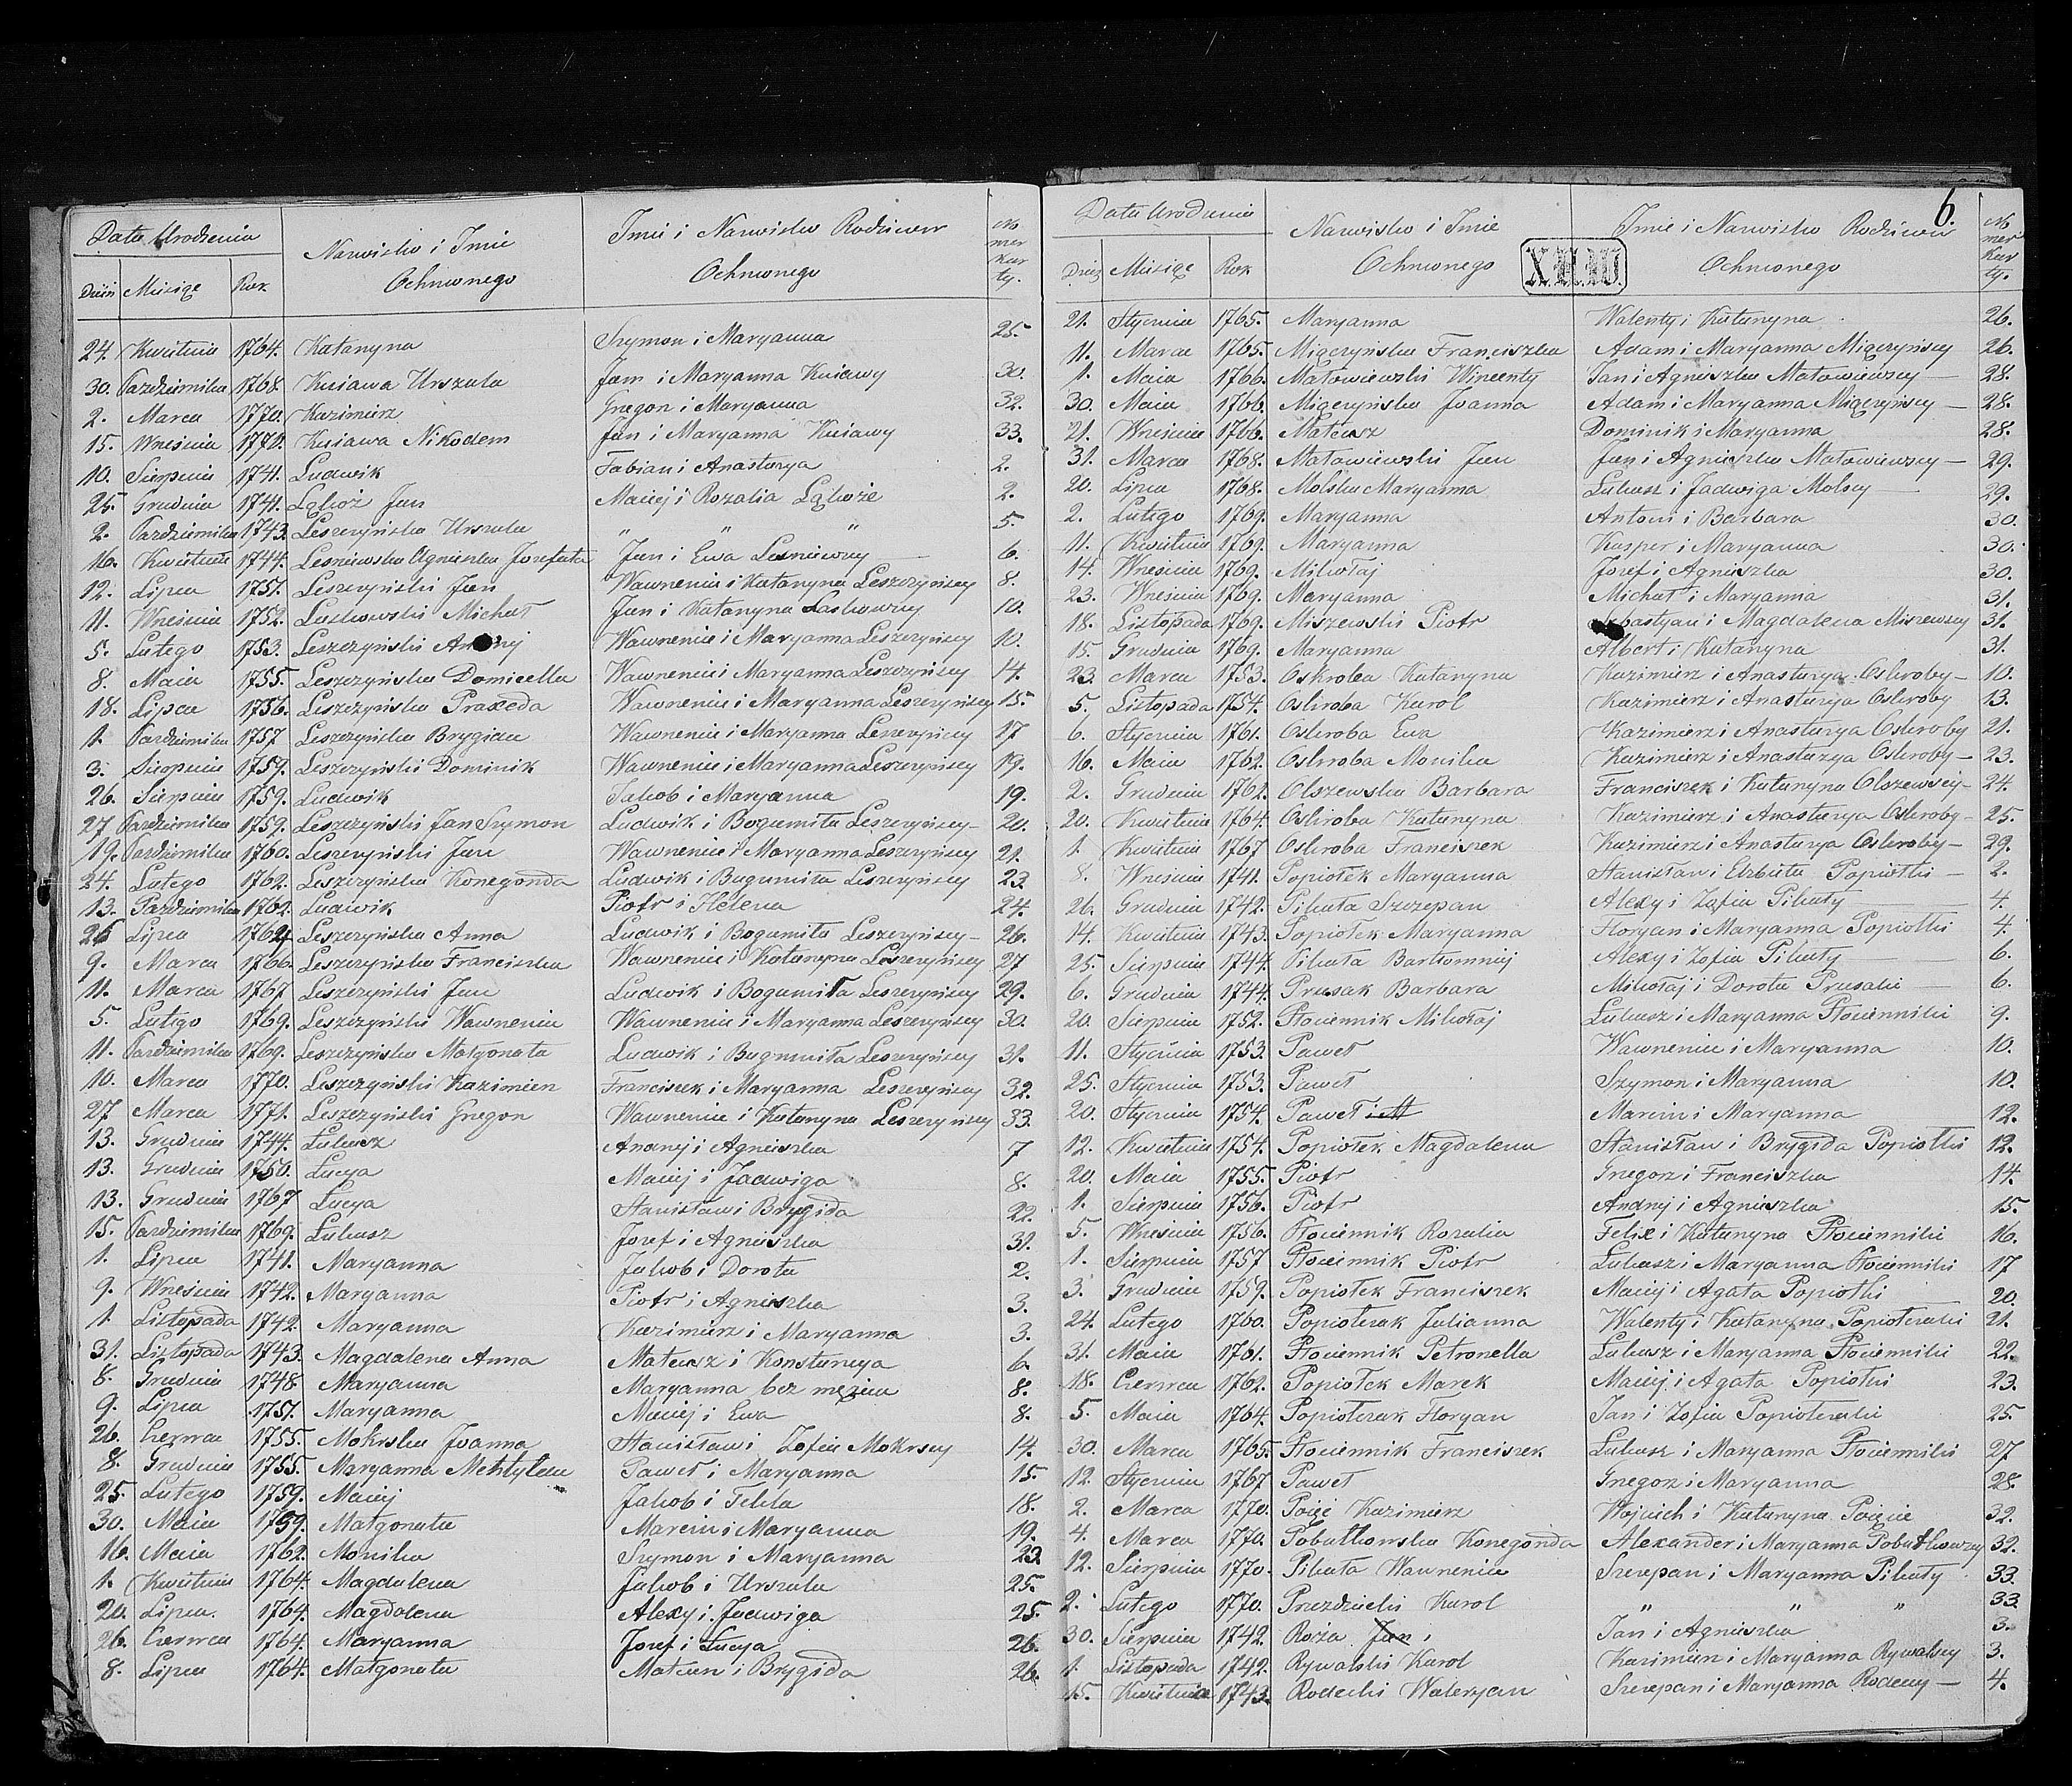 Data Urodzenia
Nazwisko i Imie Ochrzconego
Imie i Nazwisko Rodziców Ochrzconego
No mer Kar ty.
Dzień Miesiąc Rok
24. Kwietnia 1764. Katarzyna Szymon i Maryanna 25.
30. Pazdziernika 1768. Kuiawa Urszula Jan i Maryanna Kuiawy 30.
2. Marca 1770. Kazimierz Grzegorz i Maryanna 32.
15. Wrześnie 1772. Kuiawa Nikodem Jan i Maryanna Kuiawy 33.
10. Sierpnia 1741. Ludwik Fabian i Anastazya 2.
25. Grudnia 1741. Jan Maciej i Rozalia 2.
2. Pazdziernika 1743. Leszczyńska Urszula " " " 5.
16. Kwietnia 1744. Lesniewska Agnieszka Jozefata Jan i Ewa Lesniewscy 6.
12. Lipca 1751. Leszczyński Jan Wawrzeniec i Katarzyna Leszczyńscy 8.
11. Wrześnie 1752. Laskowski Michał Jan i Katarzyna Laskowscy 10.
5. Lutego 1753. Leszczyński Wawrzeniec i Maryanna Leszczyńscy 10.
8. Maia 1755. Leszczyńska Domicella Wawrzeniec i Maryanna Leszczyńscy 14.
18. Lipca 1756. Leszczyńska Praxeda Wawrzeniec i Maryanna Leszczyńscy 15.
1. Pazdziernika 1757 Leszczyńska Brygida Wawrzeniec i Maryanna Leszczyńscy 17
3. Sierpnia 1759. Leszczyński Dominik Wawrzeniec i Maryanna Leszczyńscy 19.
26. Sierpnia 1759. Ludwik Jakob i Maryanna 19.
27 Pazdziernika 1759. Leszczyński Jan Szymon Ludwik i Bogumiła Leszczyńscy 20.
19. Pazdziernika 1760. Leszczyński Jan Wawrzeniec i Maryanna Leszczyńscy 21.
24. Lutego 1762. Leszczyńska Konegonda Ludwik i Bogumiła Leszczyńscy 23
13. Pazdziernika 1762. Ludwik Piotr i Helena 24.
26 Lipca 1764 Leszczyńska Anna Ludwik i Bogumiła Leszczyńscy 26.
9. Marca 1766. Leszczyńska Franciszka Wawrzeniec i Katarzyna Leszczyńscy 27
11. Marca 1767 Leszczyński Jan Ludwik i Bogumiła Leszczyńscy 29.
5. Lutego 1769. Leszczyński Wawrzeniec Wawrzeniec i Maryanna Leszczyńscy 30.
11. Pazdziernika 1769. Leszczyńska Małgorzata Ludwik i Bogumiła Leszczyńscy 31.
10. Marca 1770. Leszczyński Kazimierz Franciszek i Maryanna Leszczyńscy 32.
27 Marca 1771. Leszczyński Grzegorz Wawrzeniec i Katarzyna Leszczyńscy 33.
13. Grudnia 1744. Łukasz Andrzej i Agnieszka 7
13. Grudnia 1750. Łucya Maciej i Jadwiga 8.
13. Grudnia 1767 Łucya Stanisław i Brygida 22.
15. Pazdziernika 1769. Łukasz Jozef i Agnieszka 31.
1. Lipca 1741. Maryanna Jakob i Dorota 2.
9. Wrześnie 1742. Maryanna Piotr i Agnieszka 3.
1. Listopada 1742. Maryanna Kazimierz i Maryanna 3.
31. Listopada 1743. Magdalena Anna Mateusz i Konstancya 6.
8. Grudnia 1748. Maryanna Maryanna bez mężna 8.
9. Lipca 1751. Maryanna Maciej i Ewa 8.
26. Czerwca 1755. Mokrska Joanna Stanisław i Zofia Mokrscy 14.
8. Grudnia 1755. Maryanna Paweł i Maryanna 15.
25. Lutego 1759. Maciej Jakob i Tekla 18.
30. Maia 1759. Małgorzata Marcin i Maryanna 19.
16. Maia 1762. Monika Szymon i Maryanna 23.
1. Kwietnia 1764. Magdalena Jakob i Urszula 25.
20. Lipca. 1764. Magdalena Alexy i Jadwiga 25.
26. Czerwca 1764. Maryanna Jozef i Łucya 26.
8. Lipca 1764. Małgorzata i Brygida 26.
6.
Data Urodzenia
Nazwisko i Imie Ochrzconego
Imie i Nazwisko Rodziców Ochrzconego
No mer Kar ty.
Dzień Miesiąc Rok
21. Stycznia 1765. Maryanna Walenty i Katarzyna 26.
11. Marca 1765. Migczyńska Franciszka Adam i Maryanna Migczyńscy 26.
1. Maia 1766. Małowiewski Wincenty Jan i Agnieszka Małowiewscy 28.
30. Maia 1766. Migczyńska Joanna Adam i Maryanna Migczyńscy 28.
21. Wrześnie 1766. Mateusz Dominik i Maryanna 28.
31. Marca 1768. Małowiewski Jan Jan i Agnieszka Małowiewscy 29.
20. Lipca 1768. Molska Maryanna Łukasz i Jadwiga Molscy 29.
2. Lutego 1769. Maryanna Antoni i Barbara 30.
11. Kwietnia 1769. Maryanna Kasper i Maryanna 30.
14. Wrześnie 1769. Mikołaj Jozef i Agnieszka 30.
23. Wrześnie 1769. Maryanna Michał i Maryanna 31.
18. Listopada 1769. Miszewski Piotr Sebastyan i Magdalena Miszewscy 31.
15. Grudnia 1769. Maryanna Albert i Katarzyna 31.
23. Marca 1753. Oskroba Katarzyna Kazimierz i Anastazya Oskroby 10.
5. Listopada 1754. Oskroba Karol Kazimierz i Anastazya Oskroby 13.
6. Stycznia 1761. Oskroba Ewa Kazimierz i Anastazya Oskroby 21.
16. Maia 1762. Oskroba Monika Kazimierz i Anastazya Oskroby 23.
2. Grudnia 1762. Olszewska Barbara Franciszek i Katarzyna Olszewscy 24.
20. Kwietnia 1764. Oskroba Katarzyna Kazimierz i Anastazya Oskroby 25.
1. Kwietnia 1767 Oskroba Franciszek Kazimierz i Anastazya Oskroby 29.
8. Wrześnie 1741. Popiołek Maryanna Stanisław i Elzbieta Popiołki 2.
26. Grudnia 1742. Pikuta Szczepan Alexy i Zofia Pikuty 4.
14. Kwietnia 1743. Popiołek Maryanna Floryan i Maryanna Popiołki 4
25. Sierpnia 1744. Pikuta Bartłomiej Alexy i Zofia Pikuty 6.
6. Grudnia 1744. Prusak Barbara Mikołaj i Dorota Prusaki 6.
20. Sierpnia 1752. Płociennik Mikołaj Łukasz i Maryanna Płocienniki 9.
11. Stycznia 1753. Paweł Wawrzeniec i Maryanna 10.
25. Stycznia 1753. Paweł Szymon i Maryanna 10.
20. Stycznia 1754. Paweł i M Marcin i Maryanna 12.
12. Kwietnia 1754. Popiołek Magdalena Stanisław i Brygida Popiołki 12.
20. Maia 1755. Piotr Grzegorz i Franciszka 14.
1. Sierpnia 1756. Piotr Andrzej i Agnieszka 15.
5. Wrześnie 1756. Płociennik Rozalia Felix i Katarzyna Płocienniki 16.
1. Sierpnia 1757 Płociennik Piotr Łukasz i Maryanna Płocienniki 17
3. Grudnia 1759. Popiołek Franciszek Maciej i Agata Popiołki 20.
24. Lutego 1760. Popiołczak Julianna Walenty i Katarzyna Popiołczaki 21.
31. Maia 1761. Płociennik Petronella Łukasz i Maryanna Płocienniki 22.
18. Czerwca 1762. Popiołek Marek Maciej i Agata Popiołki 23.
5. Maia 1764. Popiołczak Floryan Jan i Zofia Popiołczaki 25.
30. Marca 1765. Płociennik Franciszek Łukasz i Maryanna Płocienniki 27
12. Stycznia 1767 Paweł Grzegorz i Maryanna 28.
2. Marca 1770. Kazimierz Wojciech i Katarzyna 32.
4. Marca 1770. Pobutkowska Konegonda Alexander i Maryanna Pobutkowscy 32.
12. Sierpnia 1770. Pikuta Wawrzeniec Szczepan i Maryanna Pikuty 33.
2. Lutego 1770. Prazdzicki Karol " " " 33.
30. Sierpnia 1742. Roza Jan i Jan i Agnieszka 3.
1. Listopada 1742. Rywalski Karol Kazimierz i Maryanna Rywalscy 3.
15. Kwietnia 1743. Rodecki Waleryan Szczepan i Maryanna Rodeccy 4.